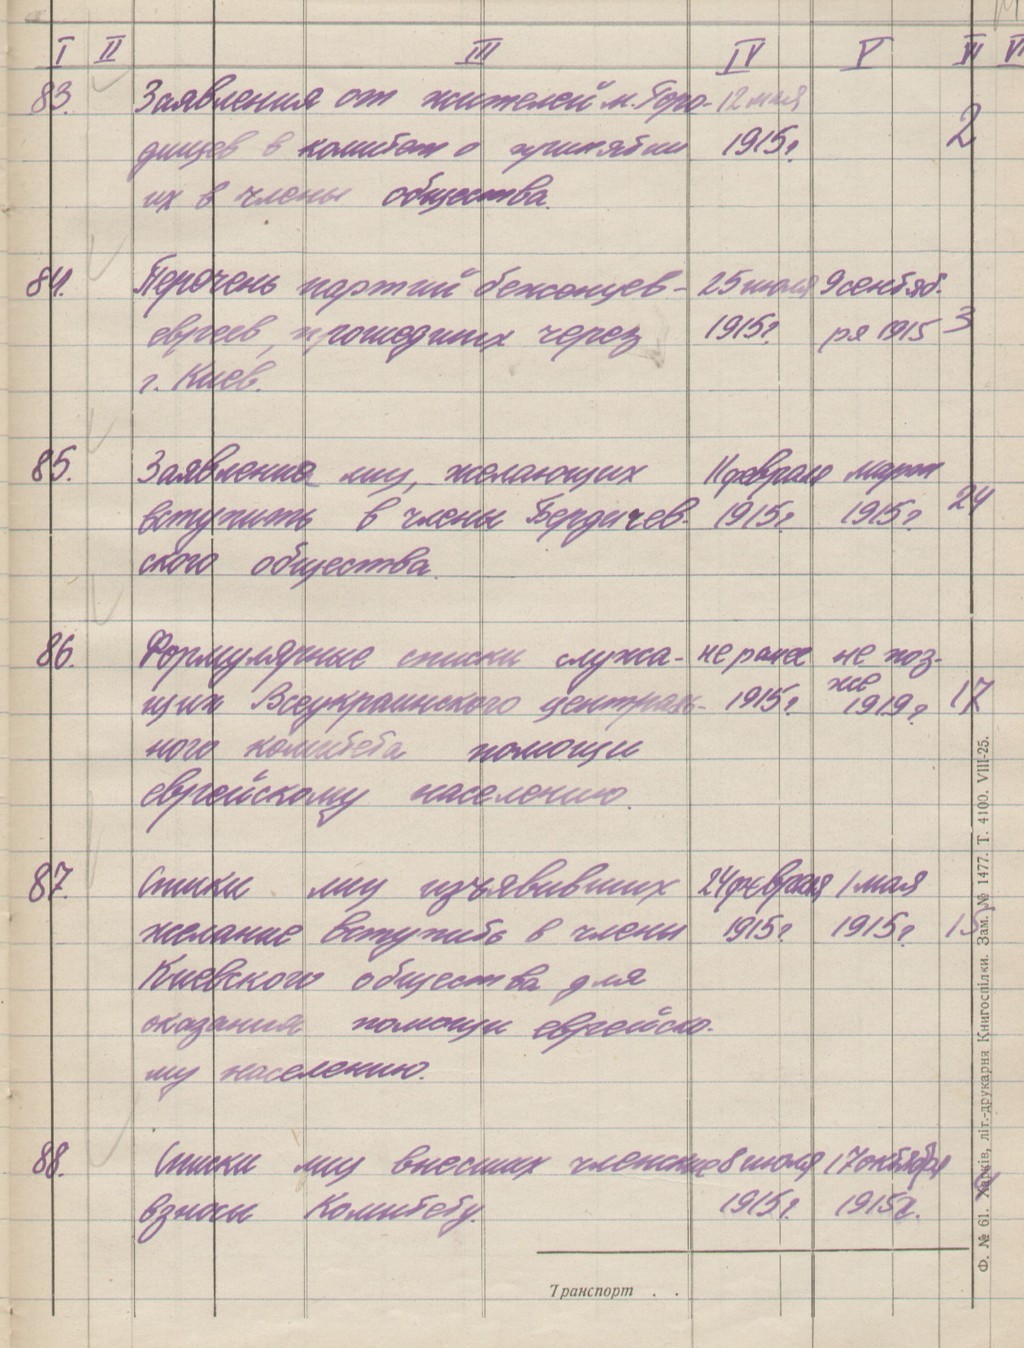 I II III IV V VI VII
83. Заявления от жителей м. Горо- 12 мая
дищев в комитет о принятии 1915 г. 2
их в члены общества.
84. Перечень партий беженцев- 25 июля 9 сентяб-
евреев, прошедших через 1915 г. ря 1915 3
г. Киев.
85. Заявления лиц, желающих 11 февраля март
вступить в члены Бердичев- 1915 г. 1915 г. 24
ского общества.
86. Формулярные списки служа- не ранее не поз-
же
щих Всеукраинского централь- 1915 г. 1919 г. 17
ного комитета помощи
еврейскому населению.
87. Списки лиц изъявивших 24 февраля 1 мая
желание вступить в члены 1915 г. 1915 г. 15
Киевского общества для
оказания помощи еврейско-
му населению.
88. Списки лиц внесших членские 8 июля 17 октября
взносы Комитету. 1915 г. 1915 г.
Транспорт . .
Ф. № 61. Харків, літ.-друкарня Книгоспілки. Зам. № 1477. Т. 4100. VIII-25.